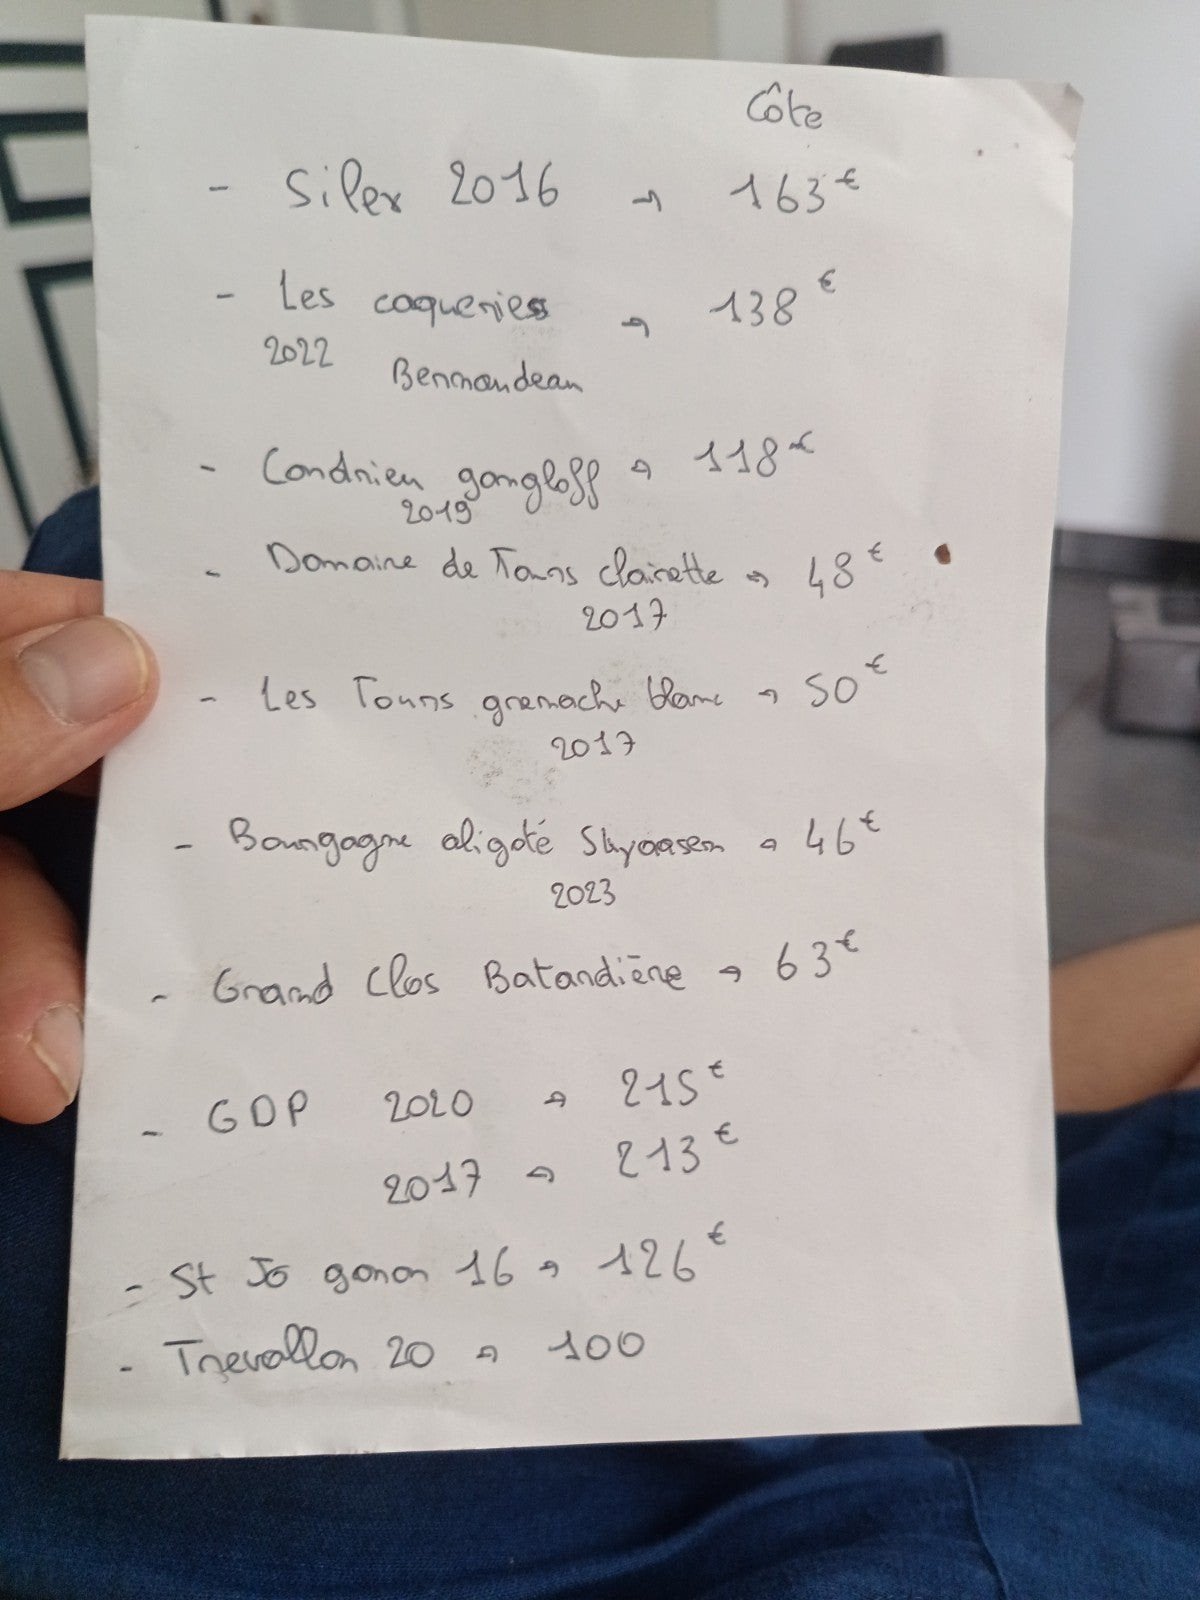 Côte
- Silex 2016 → 163€
- Les coqueries → 138€
2022 Bernaudeau
- Condrieu gangloff → 118€
2019
- Domaine de Tours clairette → 48€
2017
- Les Tours grenache blanc → 50€
2017
- Bourgogne aligoté Skyaasen → 46€
2023
- Grand Clos Batardière → 63€
- GDP 2020 → 215€
2017 → 213€
- St Jo gonon 16 → 126€
- Trevallon 20 → 100